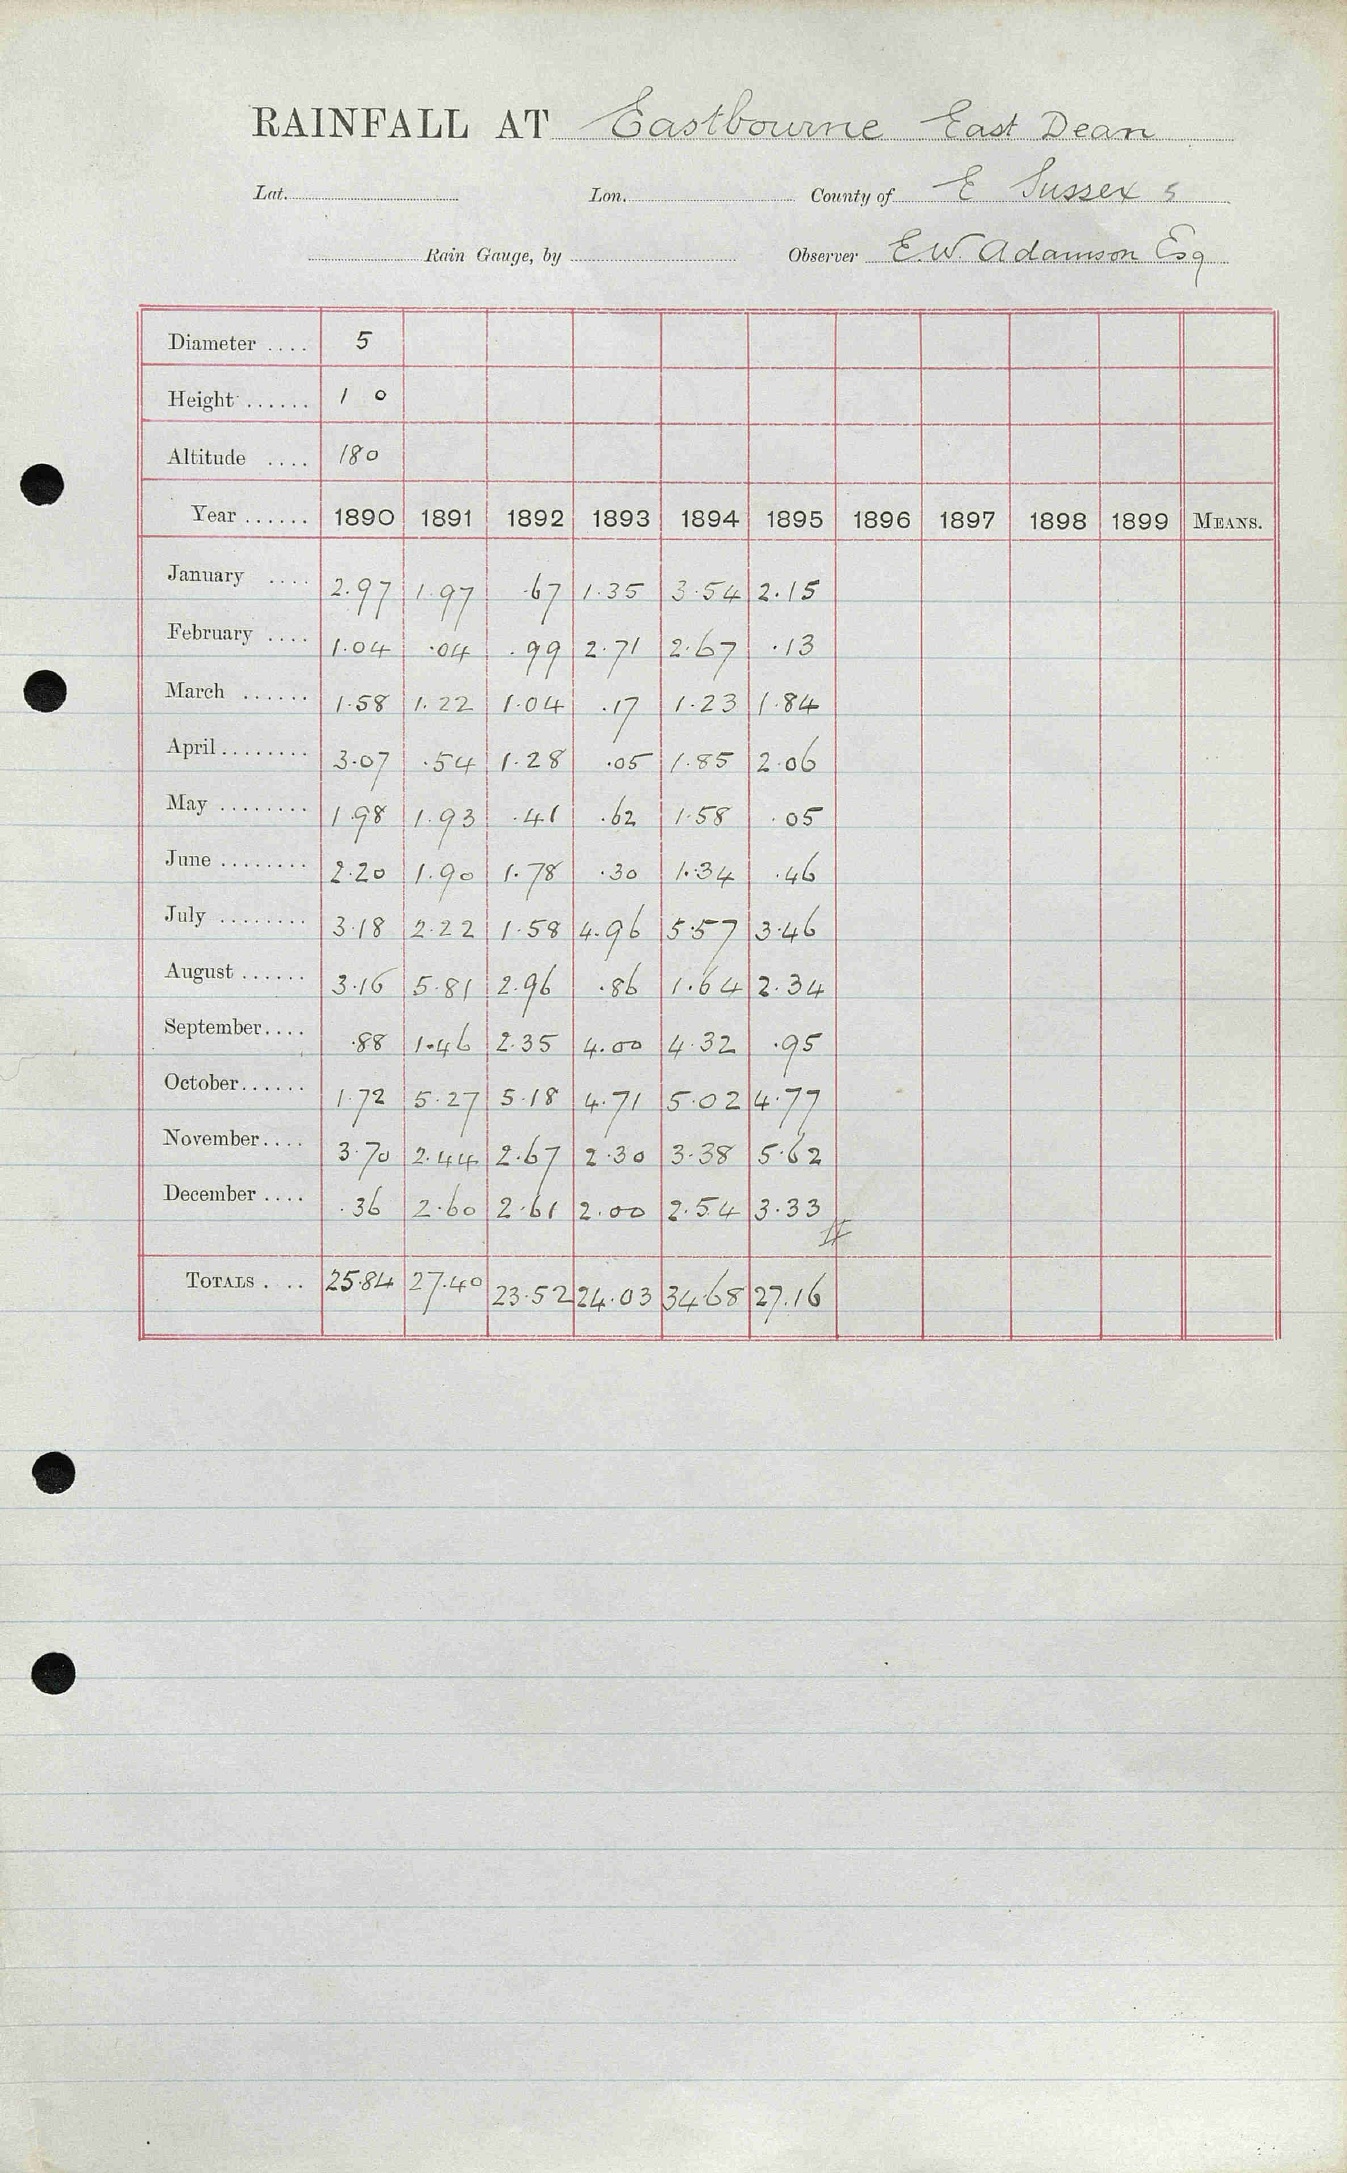 RAINFALL AT Eastbourne East Dean
Lat. Lon. County of E Sussex s
Rain Gauge, by Observer E.W. Adamson Esq
Diameter .... 5
Height ...... 1 0
Altitude .... 180
Year ...... 1890 1891 1892 1893 1894 1895 1896 1897 1898 1899 MEANS.
January .... 2.97 1.97 .67 1.35 3.54 2.15
February .... 1.04 .04 .99 2.71 2.67 .13
March ...... 1.58 1.22 1.04 .17 1.23 1.84
April ........ 3.07 .54 1.28 .05 1.85 2.06
May ........ 1.98 1.93 .41 .62 1.58 .05
June ........ 2.20 1.90 1.78 .30 1.34 .46
July ........ 3.18 2.22 1.58 4.96 5.57 3.46
August ...... 3.16 5.81 2.96 .86 1.64 2.34
September.... .88 1.46 2.35 4.00 4.32 .95
October...... 1.72 5.27 5.18 4.71 5.02 4.77
November.... 3.70 2.44 2.67 2.30 3.38 5.62
December .... .36 2.60 2.61 2.00 2.54 3.33
TOTALS . .. 25.84 27.40 23.52 24.03 34.68 27.16